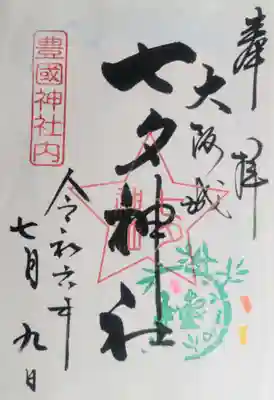 奉拝
大阪城
七夕神社
豊國神社内
令和六年
七月九日